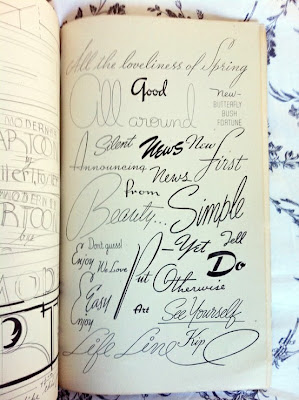 All the loveliness of Spring
Good
New-
BUTTERFLY
BUSH
FORTUNE
All around
Silent News New
Announcing News First
From
Beauty... Simple
Don't guess!
- Yet Tell
Enjoy We Love Put Do
Otherwise
Easy
Enjoy Art See Yourself
Life Line Kip
MODERN
CARTOON
by
MODERN
CARTOON
by
the